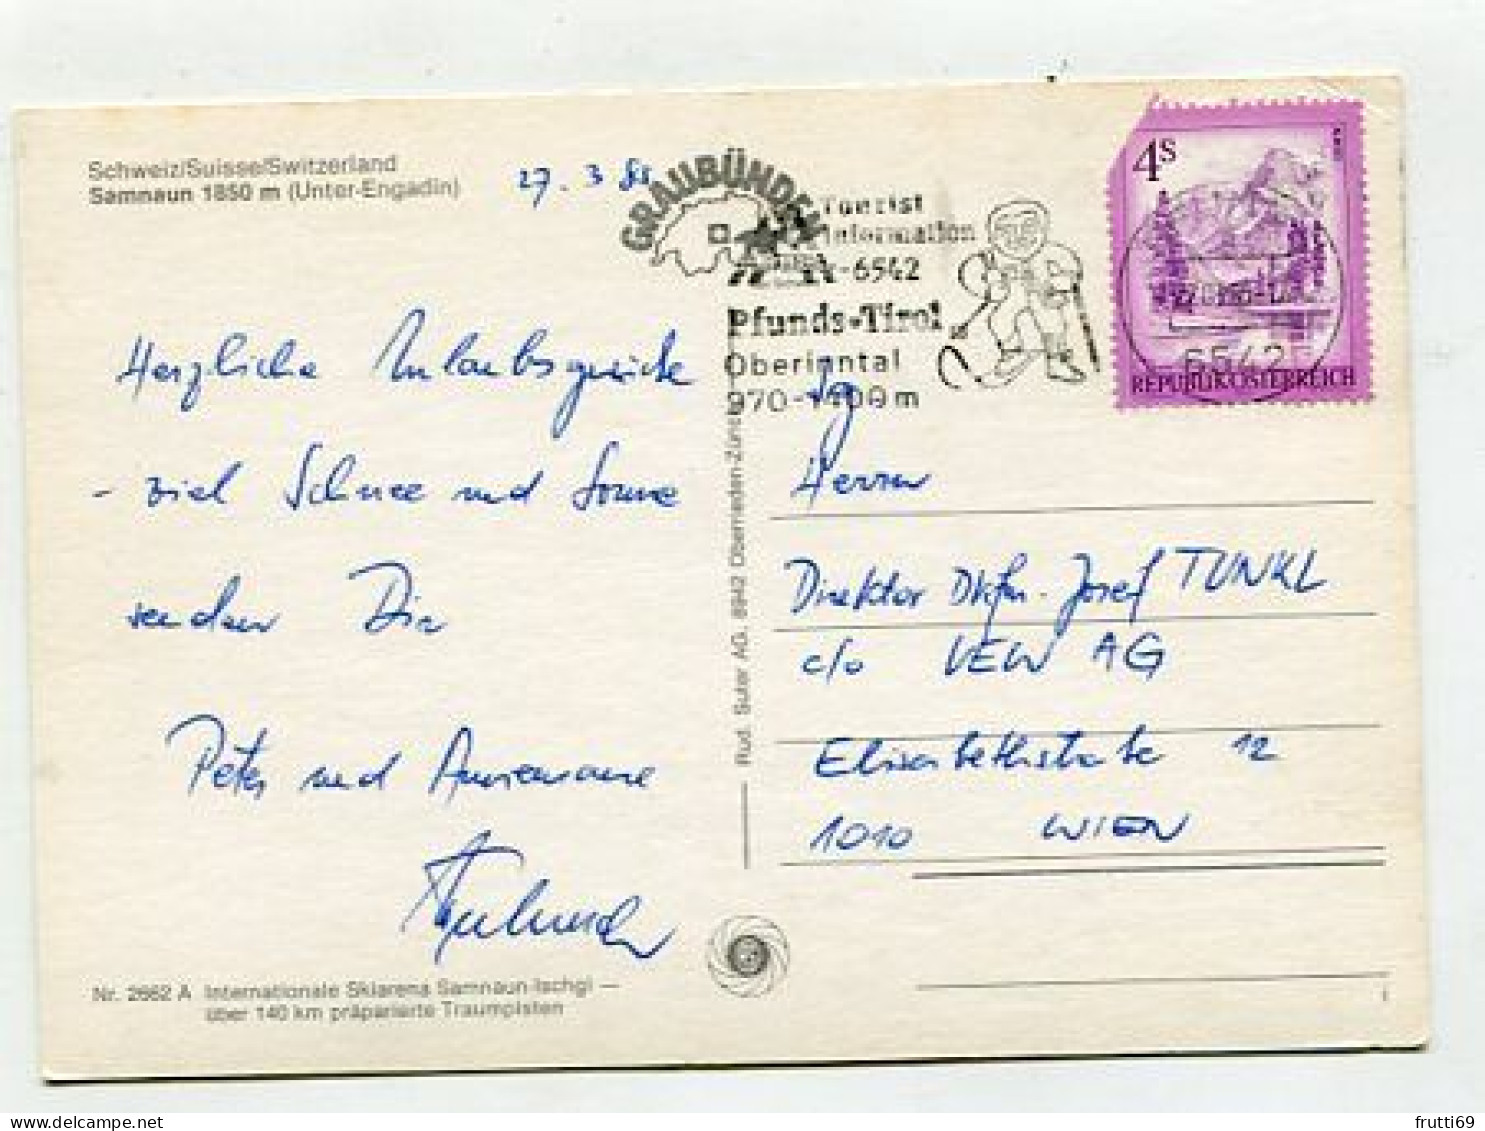 Schweiz/Suisse/Switzerland
Samnaun 1850 m (Unter-Engadin)
27. 3 86
GRAUBÜNDEN
Tourist
Information
-6542
Pfunds-Tirol
Oberinntal
970-1400 m
4S
REPUBLIK ÖSTERREICH
6542
Herzliche Urlaubsgrüße
- viel Schnee und Sonne
senden Dir
Peter und Annemarie
Sg
Herrn
Direktor Dkfm. Josef TUNKL
c/o VEW AG
Elisabethstraße 12
1010 WIEN
Rud. Suter AG. 8942 Oberrieden-Zürich
Nr. 2662 A Internationale Skiarena Samnaun-Ischgl —
über 140 km präparierte Traumpisten
frutti69